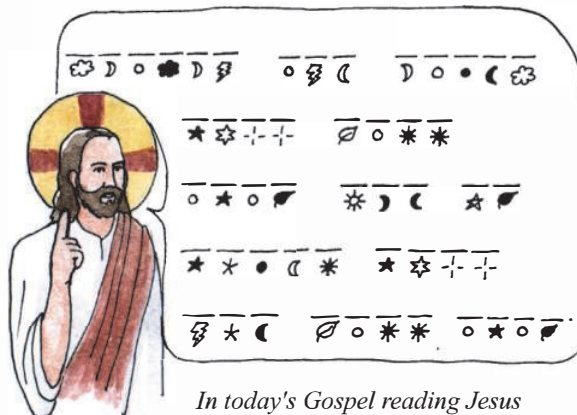 In today's Gospel reading Jesus